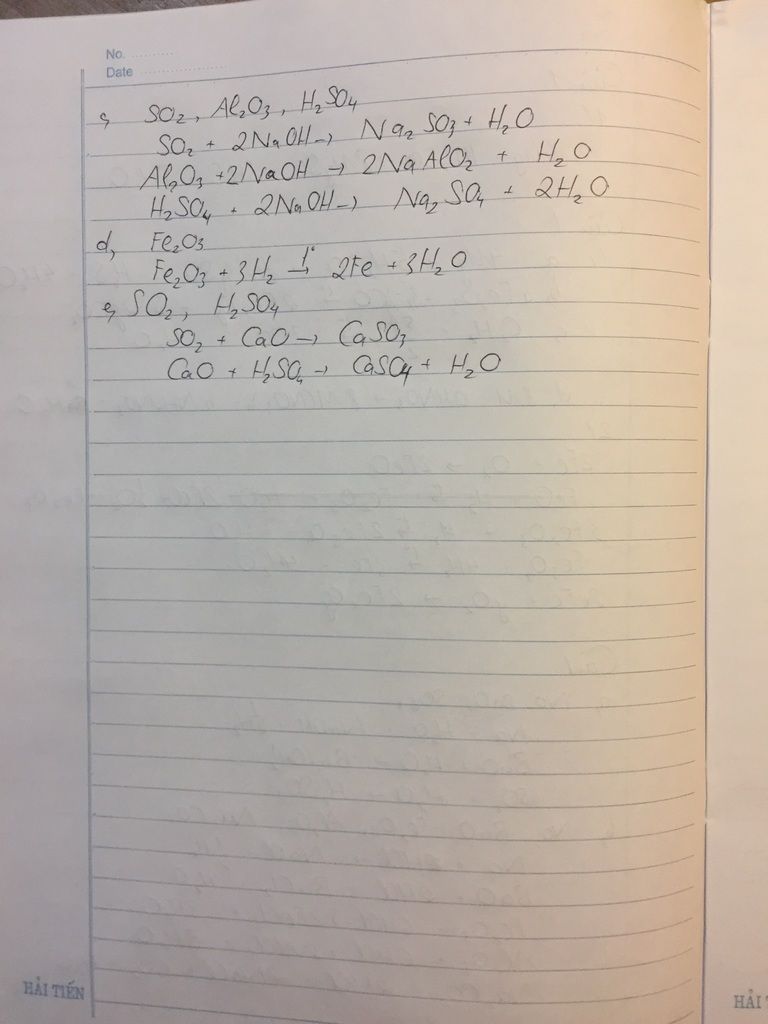 No. ............
Date ........................
c, SO₂, Al₂O₃, H₂SO₄
SO₂ + 2NaOH → Na₂SO₃ + H₂O
Al₂O₃ + 2NaOH → 2NaAlO₂ + H₂O
H₂SO₄ + 2NaOH → Na₂SO₄ + 2H₂O
d, Fe₂O₃
Fe₂O₃ + 3H₂ →(t°) 2Fe + 3H₂O
e, SO₂, H₂SO₄
SO₂ + CaO → CaSO₃
CaO + H₂SO₄ → CaSO₄ + H₂O
HẢI TIẾN
HẢI